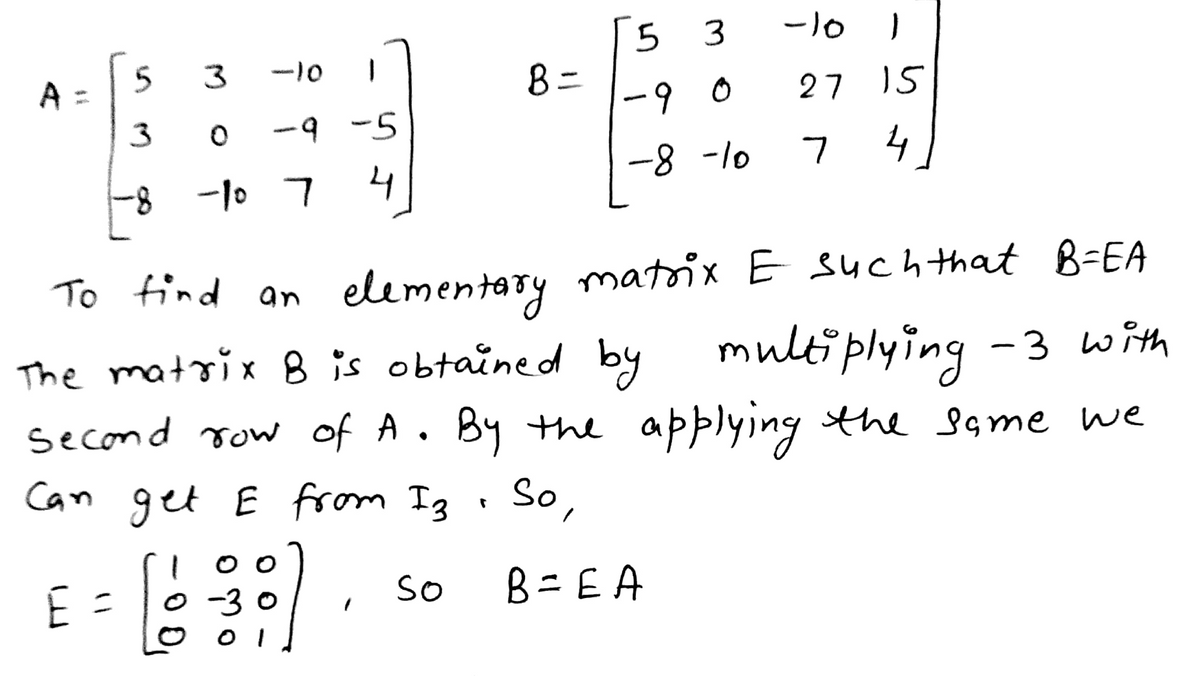 A = [5 3 -10 1
3 0 -9 -5
-8 -10 7 4]
B = [5 3 -10 1
-9 0 27 15
-8 -10 7 4]
To find an elementary matrix E such that B=EA
The matrix B is obtained by multiplying -3 with
second row of A. By the applying the same we
Can get E from I3. So,
E = [1 0 0
0 -3 0
0 0 1], so B = EA